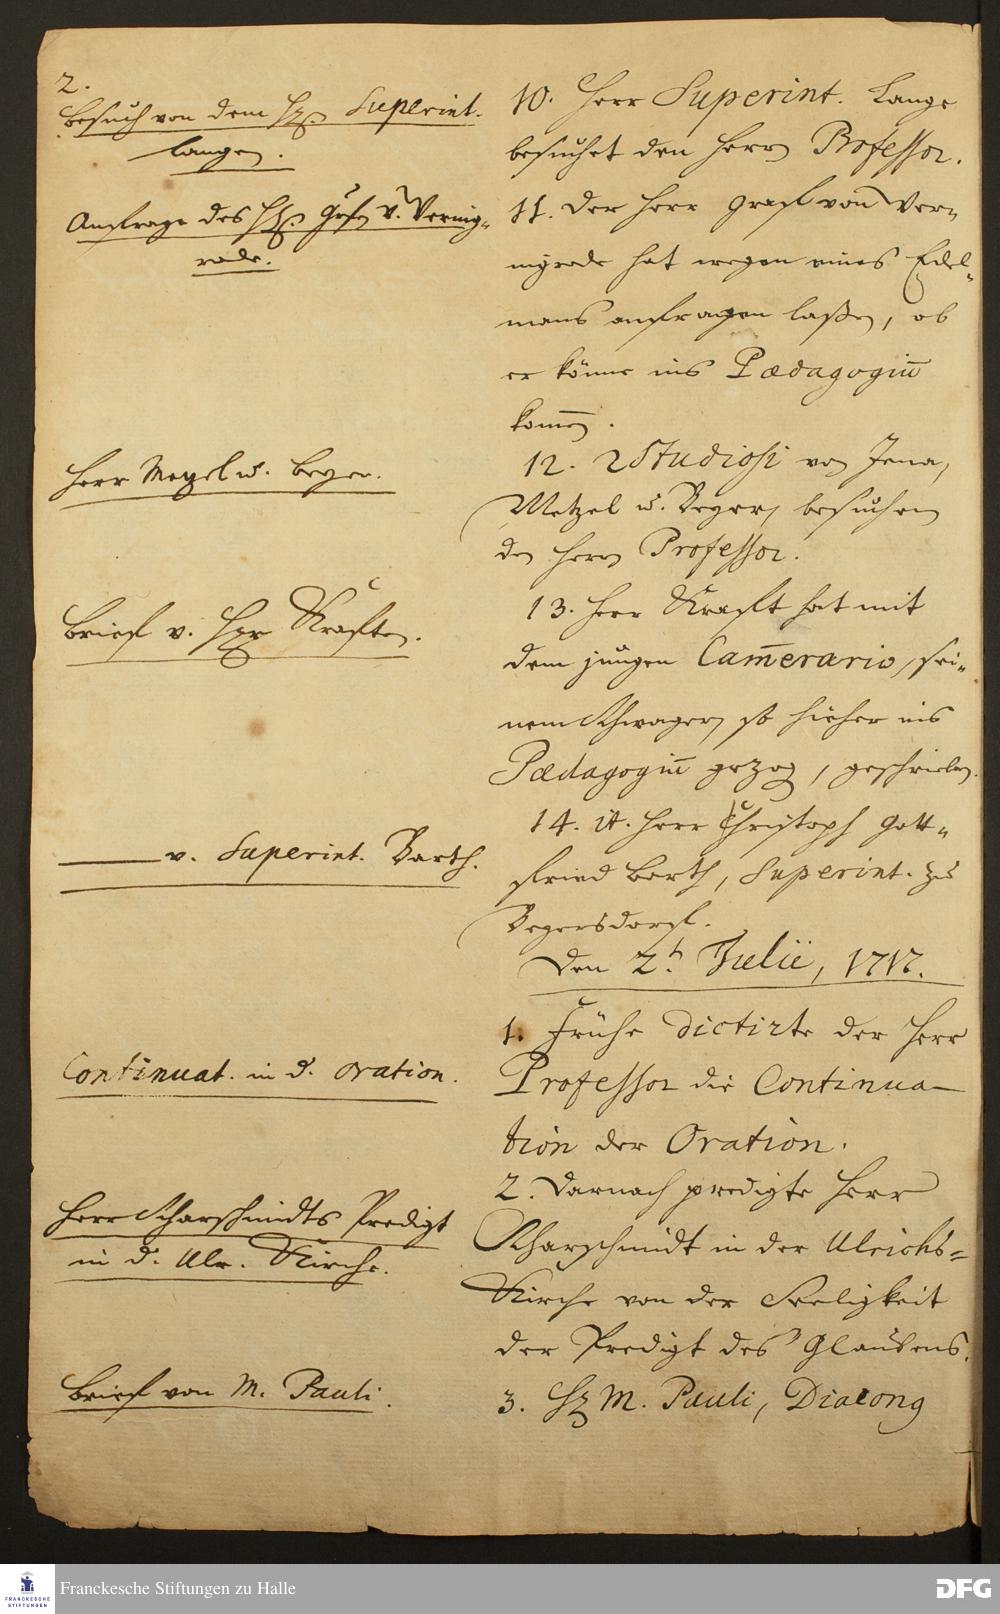 2.
Besuch von dem H. Superint.
Langen.
Anfrage des H. Grfn v. Vernig-
rode.
Herr Mezel u. Beyer.
Brief v. Herr Kraften.
v. Superint. Barth.
Continuat. in d. oration.
Herr Scharschmidts Predigt
in d. Ulr. Kirche.
Brief von M. Pauli.
10. Herr Superint. Lange
besuchet den Herrn Professor.
11. Der Herr Graf von Ver-
nigrode hat wegen eines Edel-
mans anfragen laßen, ob
er könne ins Pædagogiū
kom̄en.
12. 2 Studiosi von Jena,
Metzel u. Beyer, besuchen
den Herrn Professor.
13. Herr Kraft hat mit
dem jungen Cam̄erario, sei-
nem Schwager, so hieher ins
Pædagogiū gezog, geschrieben.
14. it. Herr Christoph Gott-
fried Barth, Superint. zu
Begersdorf.
Den 2t. Julii, 1717.
1. Frühe dictirte der Herr
Professor die Continua-
tion der Oration.
2. Darnach predigte Herr
Scharschmidt in der Ulrichs-
Kirche von der Seeligkeit
der Predigt des Glaubens.
3. H. M. Pauli, Diacong
Franckesche Stiftungen zu Halle
FRANCKESCHE
STIFTUNGEN
DFG